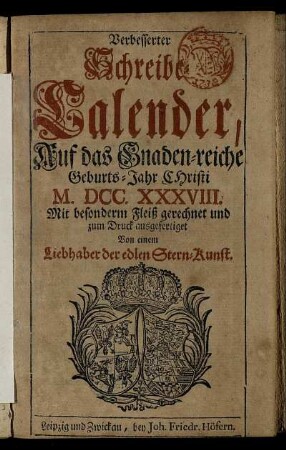 Verbesserter
Schreib-
Calender,
Auf das Gnaden-reiche
Geburts-Jahr CHristi
M. DCC. XXXVIII.
Mit besonderm Fleiß gerechnet und
zum Druck ausgefertiget
Von einem
Liebhaber der edlen Stern-Kunst.
Leipzig und Zwickau, bey Joh. Friedr. Höfern.